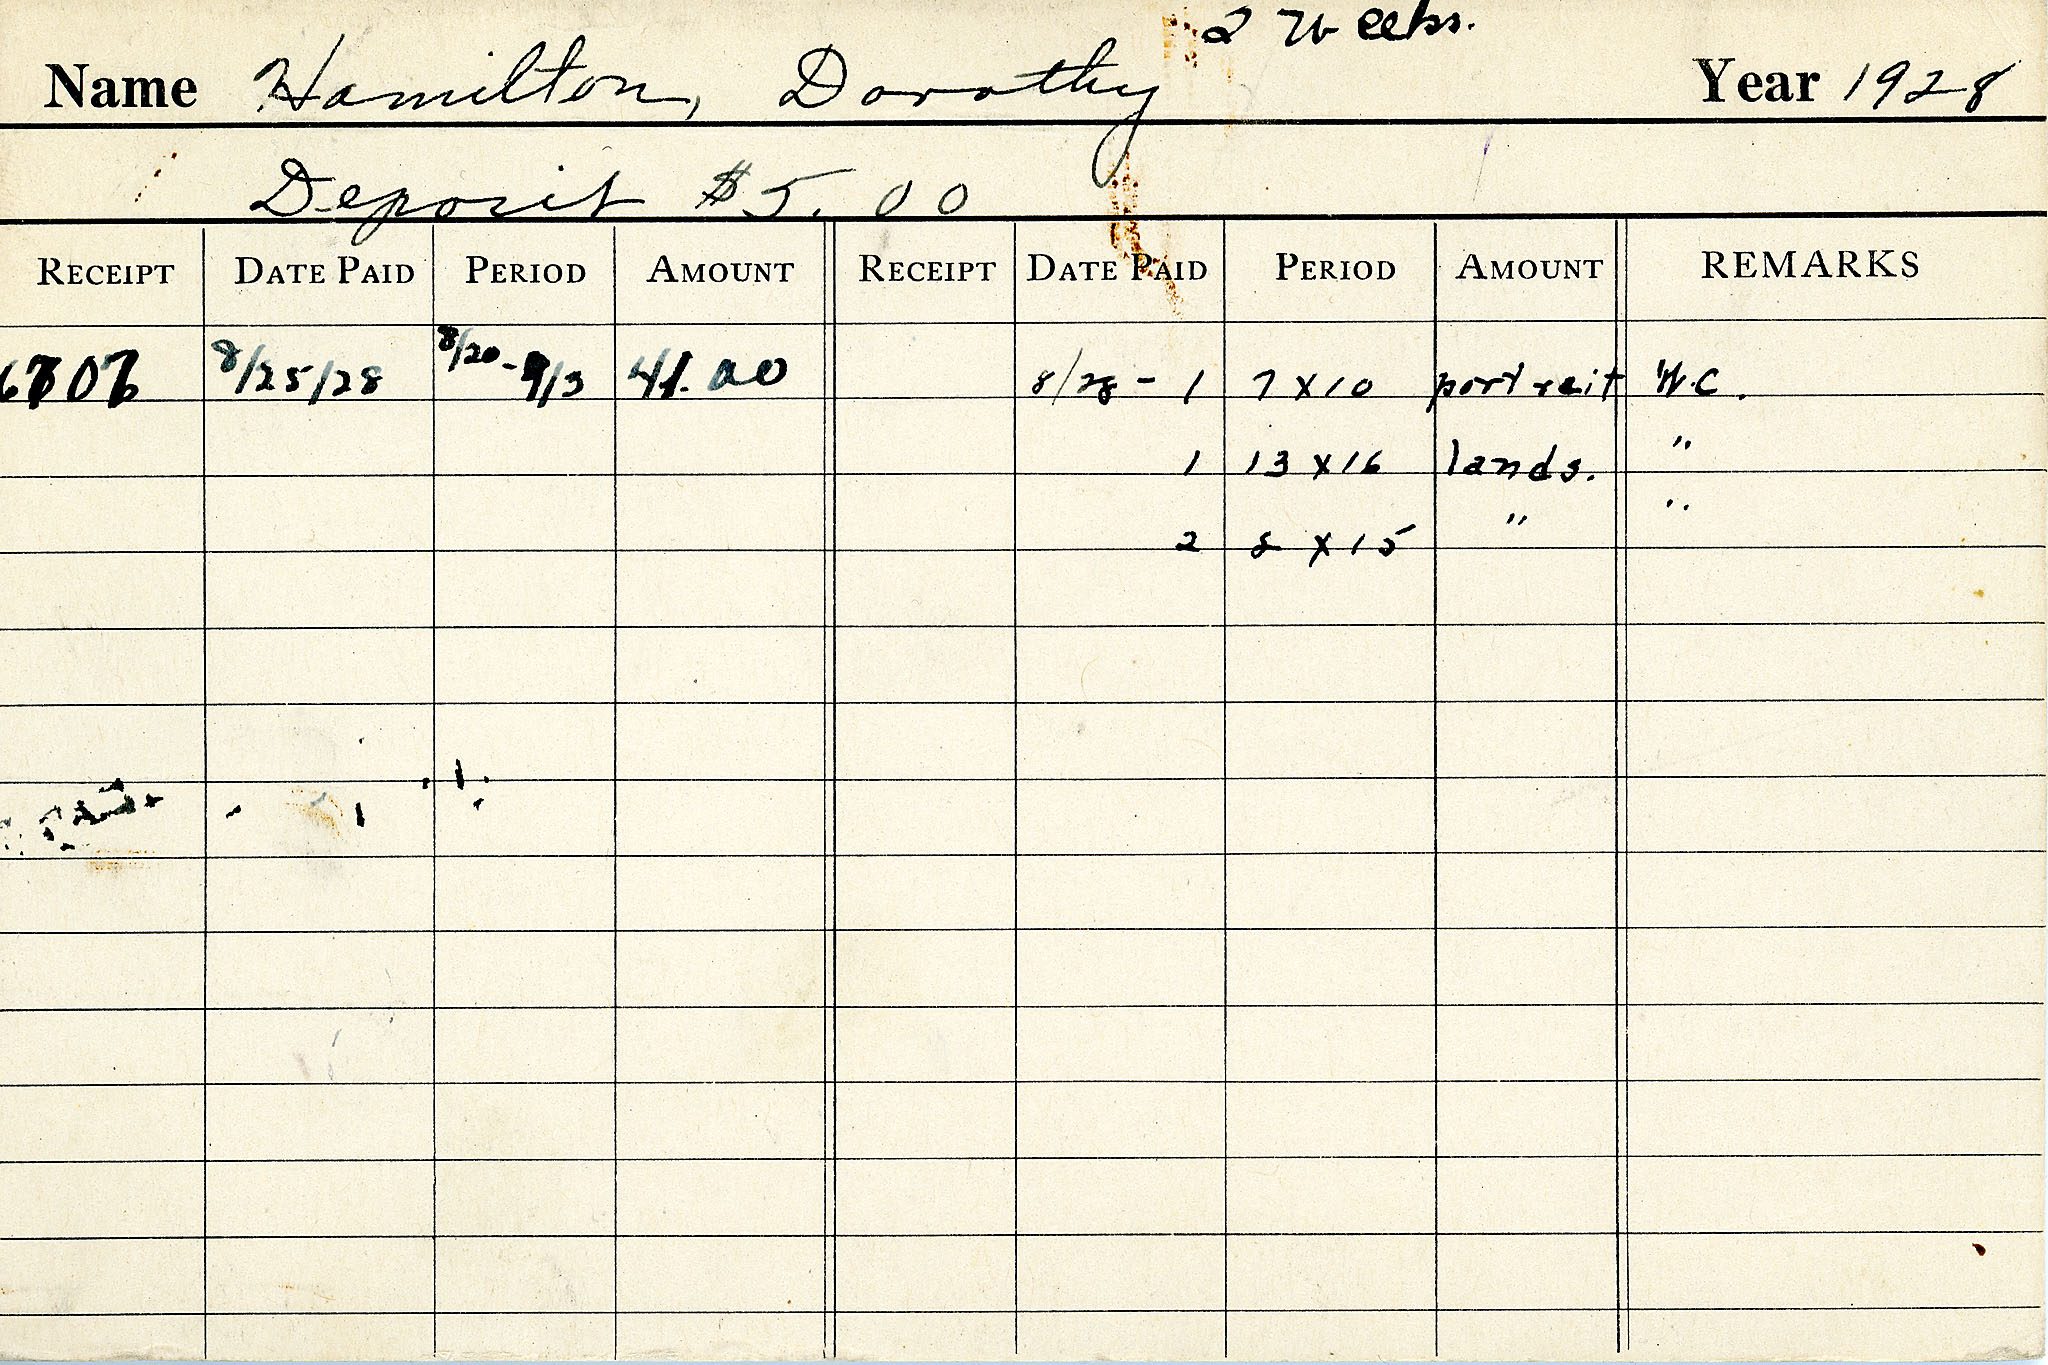 2 Weeks.
Name Hamilton, Dorothy Year 1928
Deposit $5.00
RECEIPT DATE PAID PERIOD AMOUNT RECEIPT DATE PAID PERIOD AMOUNT REMARKS
8/25/28 8/20-9/3 41.00 8/28 - 1 7 x 10 portreit W.C.
1 13 x 16 lands. "
2 8 x 15 " "